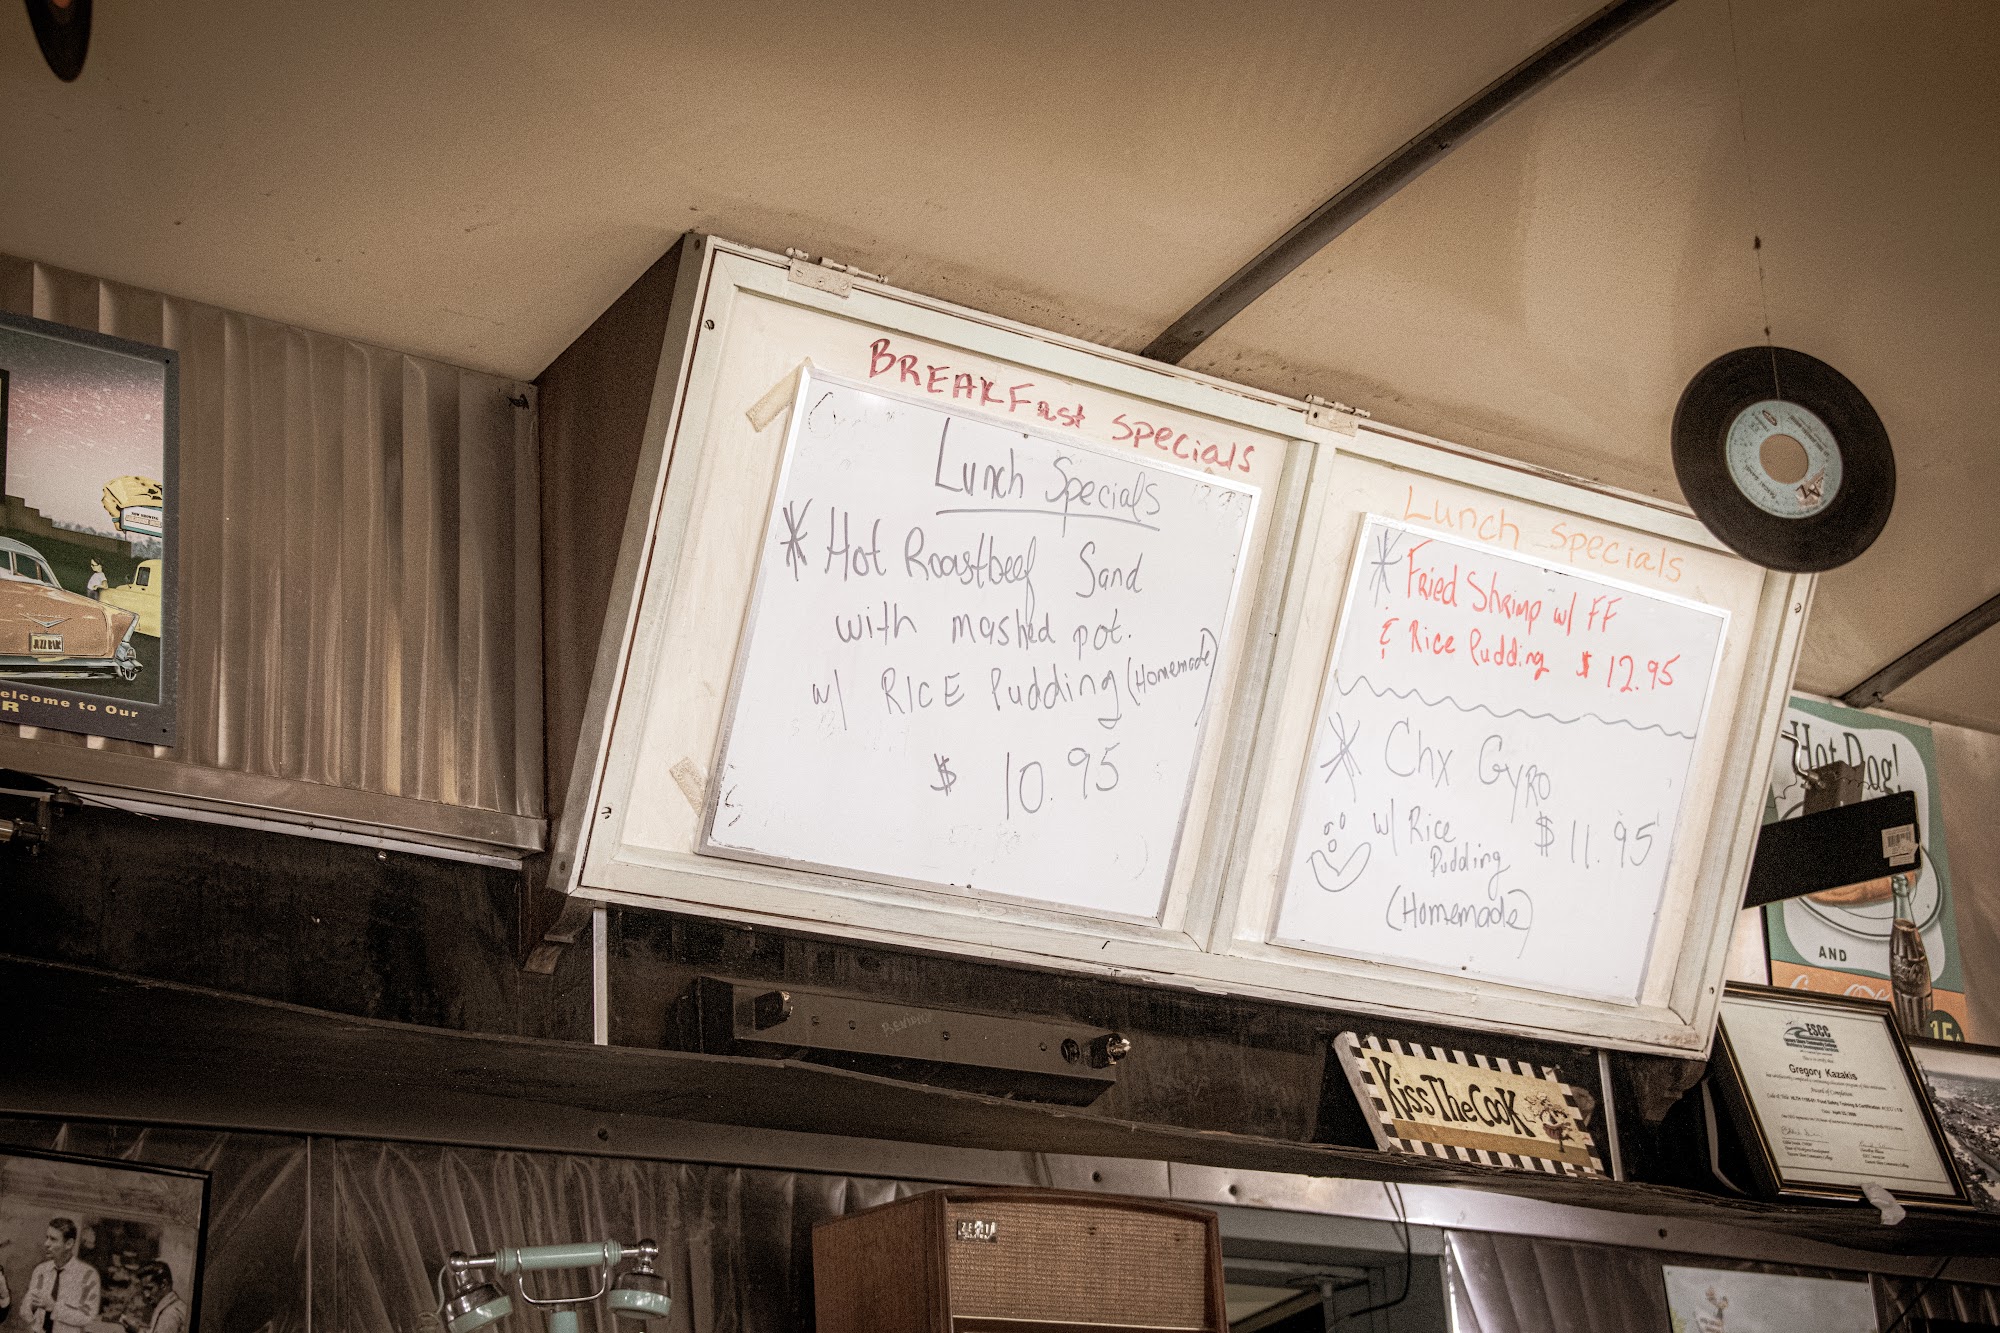 BREAKFast Specials
Lunch Specials
* Hot Roastbeef Sand
with mashed pot.
w/ RICE Pudding (Homemade)
$ 10.95
Lunch Specials
* Fried Shrimp w/ FF
& Rice Pudding $ 12.95
* Chx Gyro
w/ Rice $ 11.95
Pudding
(Homemade)
elcome to Our
R
Hot Dog!
AND
15¢
KissTheCooK
ESCC
Gregory Kazakis
Award of Completion